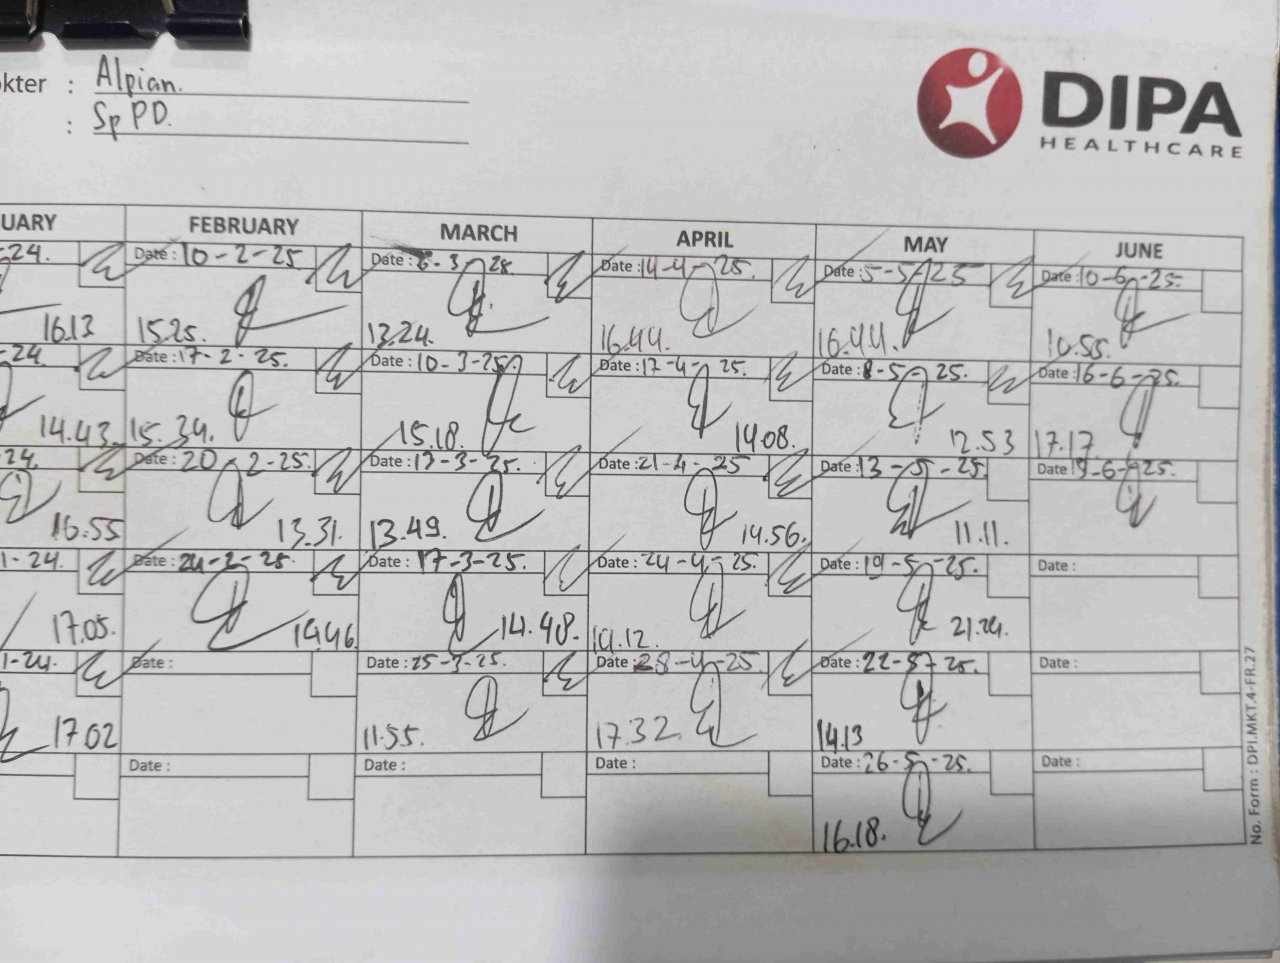 okter : Alpian.
: Sp PD.
DIPA
HEALTHCARE
UARY FEBRUARY MARCH APRIL MAY JUNE
-24. Date : 10-2-25 Date : 6-3-25. Date : 14-4-25. Date : 5-5-25 Date : 10-6-25.
16.13 15.25. 13.24. 16.44. 16.44. 10.55.
-24 Date : 17-2-25. Date : 10-3-25. Date : 17-4-25. Date : 8-5-25. Date : 16-6-25.
14.43. 15.34. 15.18. 14.08. 12.53 17.17.
-24. Date : 20-2-25. Date : 13-3-25. Date : 21-4-25 Date : 13-5-25. Date : -6-25.
16.55 13.31. 13.49. 14.56. 11.11.
1-24. Date : 24-2-25. Date : 17-3-25. Date : 24-4-25. Date : 19-5-25. Date :
17.05. 14.46. 14.48. 21.24.
1-24. Date : Date : 25-3-25. Date : 28-4-25. Date : 22-5-25. Date :
17.02 11.55. 17.32. 14.13
Date : Date : Date : Date : 26-5-25. Date :
16.18.
No. Form : DPI.MKT.4-FR.27